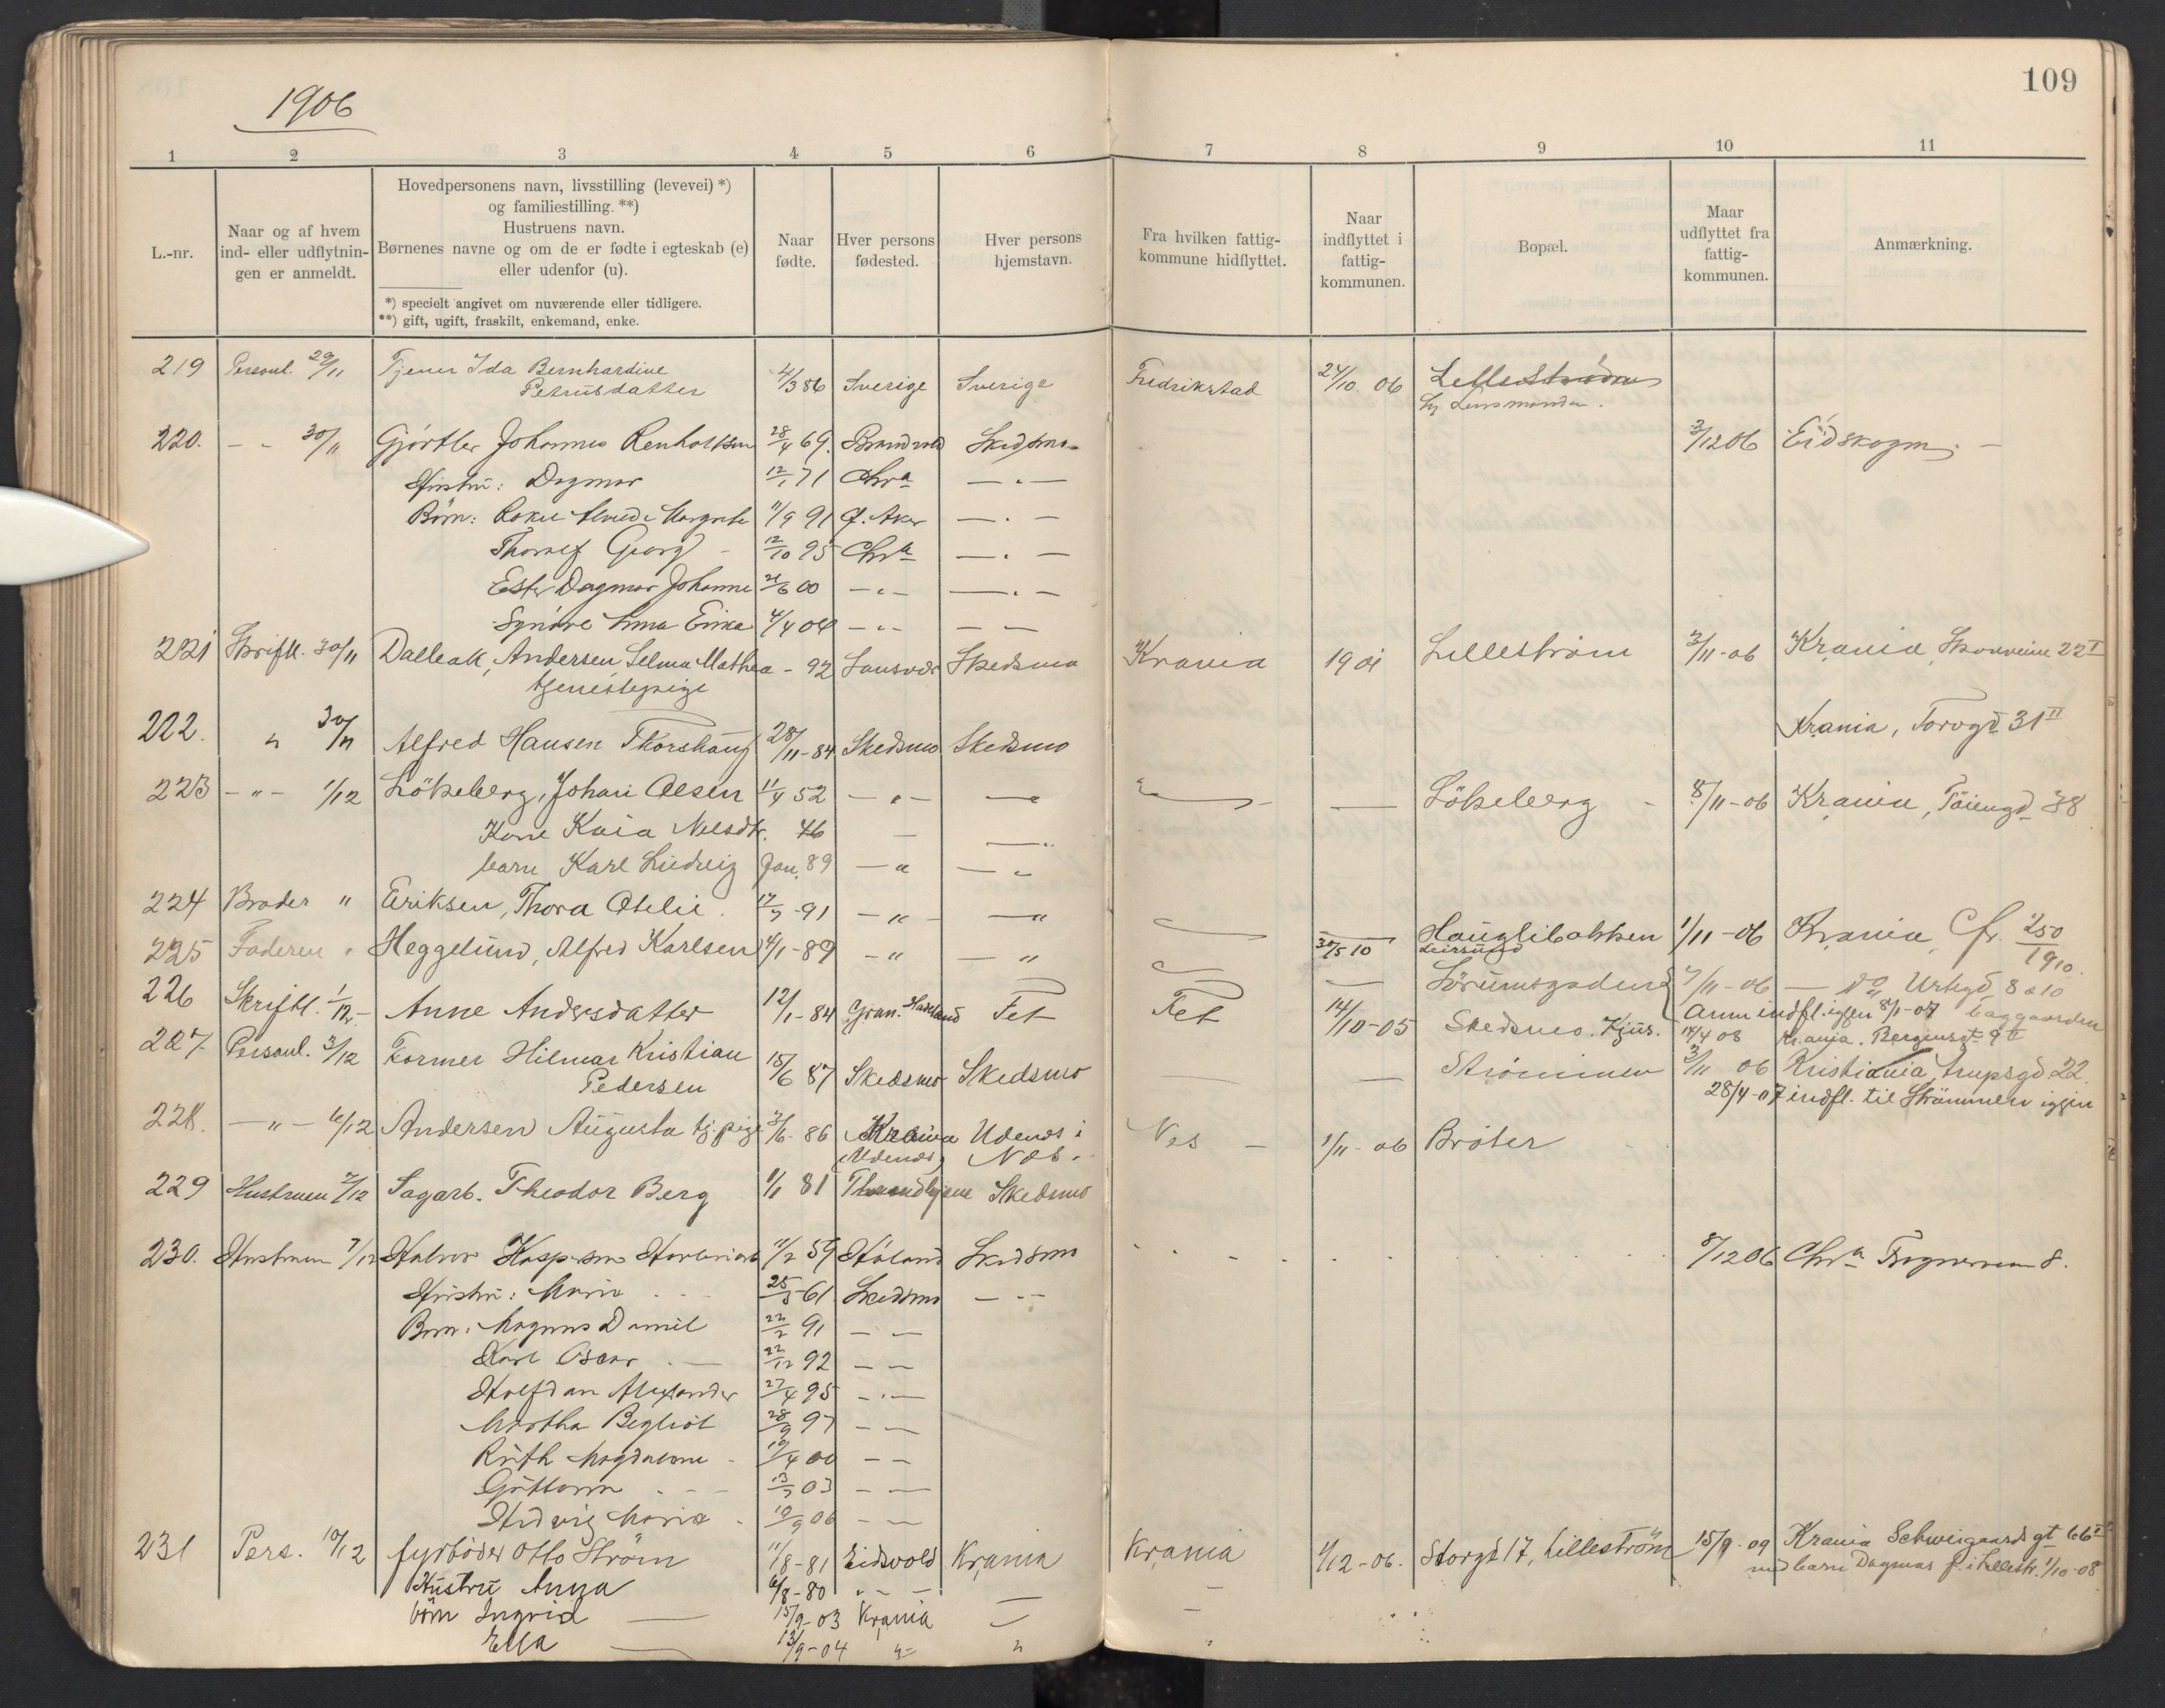 1906
109
1 2 3 4 5 6 7 8 9 10 11
L.-nr.
Naar og af hvem
ind- eller udflytnin-
gen er anmeldt.
Hovedpersonens navn, livsstilling (levevei) *)
og familiestilling. **)
Hustruens navn.
Børnenes navne og om de er fødte i egteskab (e)
eller udenfor (u).
*) specielt angivet om nuværende eller tidligere.
**) gift, ugift, fraskilt, enkemand, enke.
Naar
fødte.
Hver persons
fødested.
Hver persons
hjemstavn.
Fra hvilken fattig-
kommune hidflyttet.
Naar
indflyttet i
fattig-
kommunen.
Bopæl.
Maar
udflyttet fra
fattig-
kommunen.
Anmærkning.
219 Personl. 29/11 Tjener Ida Bernhardine 4/3 86 Sverige Sverige Fredrikstad 24/10 06 Lilleström
Petrusdatter
220. - - 30/11 Gjørtler Johannes 28/4 69. Brandvold Skedsmo 3/12 06 Eidskogen. -
Hustru: Dagmar 12/1 71 Chr.a — " —
Børn: Margrete 11/9 91 Ø. Aker — . —
Thoralf Georg - 12/10 95 Chr.a — . —
Ester Dagmar Johanne 21/6 00 — " — — . —
4/4 04 — " — — —
221 Skriftl. 30/11 Dalbak, Andersen Selma Mathea - 92 Skedsmo Krania 1901 Lilleström 3/11-06 Krania, 22 I
tjenestepige
222. " 30/11 Alfred Hansen Thorshaug 28/11-84 Skedsmo Skedsmo Krania, Torvgd 31 II
223 - " - 1/12 Lökeberg, Johan Olsen 11/4 52 — " — — " Lökeberg - 8/11-06 Krania, Töiengd 38
Kone Kaia Nilsdtr. 46 — — "
barn Karl Ludvig Jan. 89 — " — "
224 Broder " Eriksen, Thora Otelie. 17/7-91 — " — — " Hauglibakken 1/11-06 Krania, Cfr. 250/1910.
225 Faderen " Heggelund, Alfred Karlsen 4/1-89 - " — " 30/5 10 Leirsund
Sörumsgaden 7/11-06 — do Urtegd 8 a 10
226 Skriftl. 1/12 - Anne Andersdatter 12/1-84 Gran. Hadeland Fet Fet 14/10-05 Skedsmo. Kjus. Anm indfl. igjen 8/1-07 baggaarden
14/4 08 Krania. Bergensgt 9 II
227 Personl. 3/12 Former Hilmar Kristian 15/6 87 Skedsmo Skedsmo — — Strömmen 3/11 06 Kristiania, trupsgd 22.
Pedersen 28/4-07 indfl. til Strömmen igjen
228. — " — 6/12 Andersen Augusta tj.pige 3/6-86 Krania Udenes i Nes — 1/11-06 Bråter
(Udenes) Nes.
229 Hustruen 7/12 Sagarb. Theodor Berg 1/1 81 Throndhjem Skedsmo
230. Hustruen 7/12 Halvor Kaspersen 11/2 59 Høland Skedsmo 8/12 06 Chr.a 8.
Hustru: Marie 25/5 61. Skedsmo — " —
Børn: Magnus Daniel 22/2 91 — —
Karl Oscar - 22/12 92 — —
Halfdan Alexander 27/4 95 - . —
Martha Bergliot 28/9 97 — —
Ruth Magdalene - 10/4 00 — —
Guttorm - 13/7 03 — —
Hedvig Marie - 10/9 06 — —
231 Pers. 10/12 fyrböder Otto Ström 11/8-81 Eidsvold Krania Krania 1/12-06. Storgd 17, Lilleström 15/9-09 Krania Schweigaards gt 66 II
Hustru Anna 6/8-80 " - — — med barn Dagmar f. i Lillestr. 1/10-08
börn Ingrid — 15/9-03 Krania — —
Ella — 13/9-04 " "